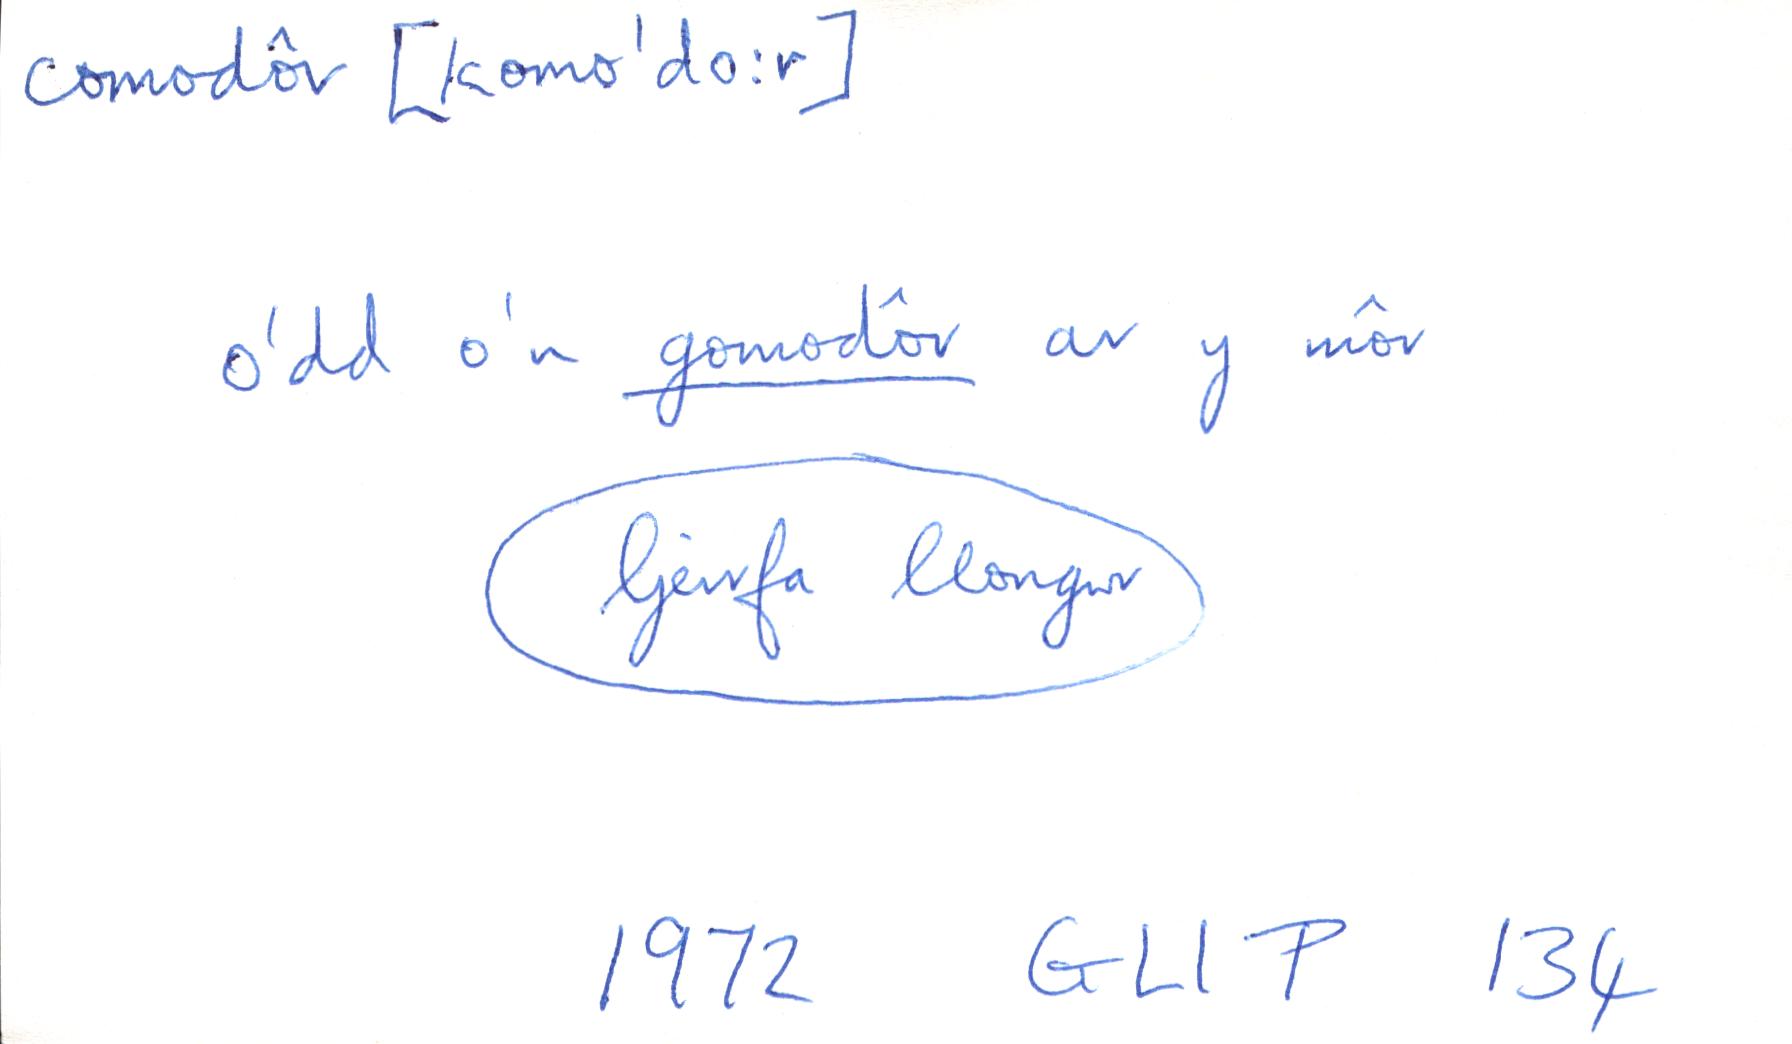 comodôr [komo'do:r]
o'dd o'n gomodôr ar y môr
llongwr
1972 GLlP 134